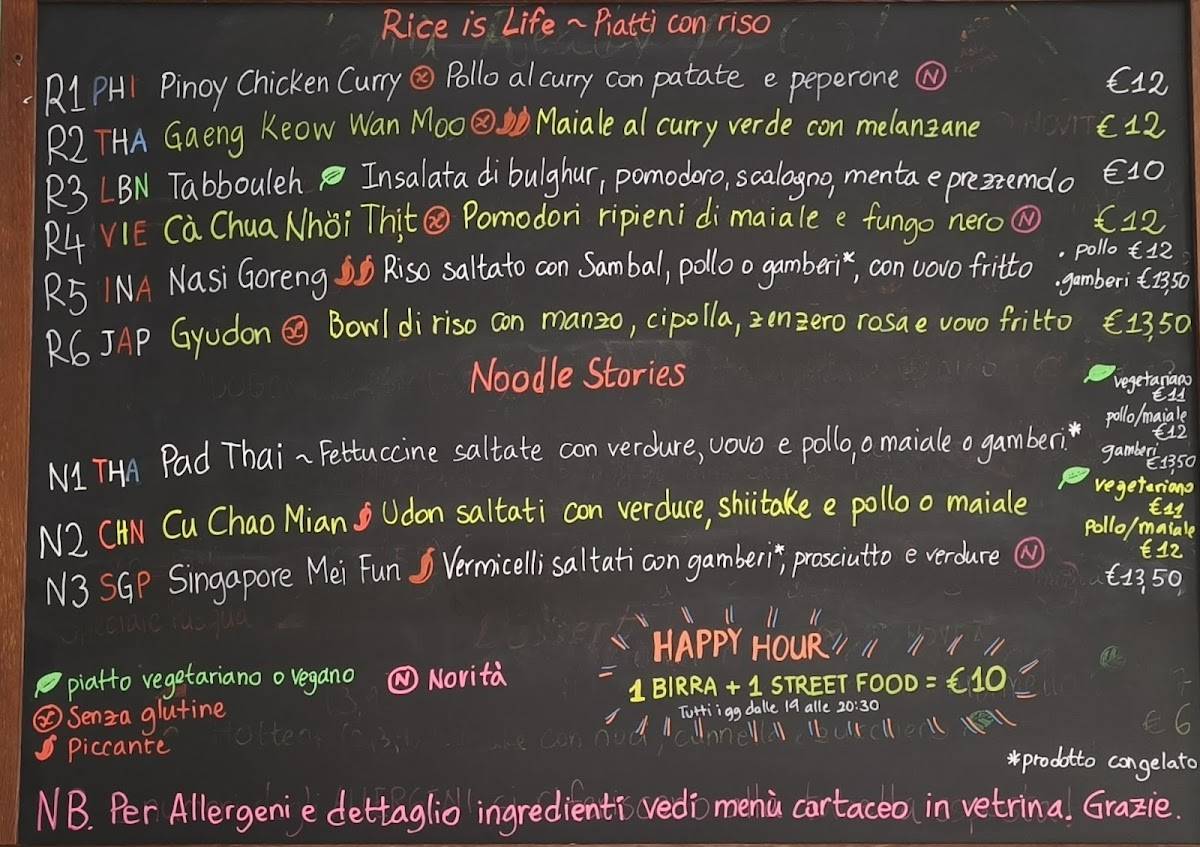 Rice is Life ~ Piatti con riso
R1 PHI Pinoy Chicken Curry Pollo al curry con patate e peperone N €12
R2 THA Gaeng Keow Wan Moo Maiale al curry verde con melanzane €12
R3 LBN Tabbouleh Insalata di bulghur, pomodoro, scalogno, menta e prezzemolo €10
R4 VIE Cà Chua Nhồi Thịt Pomodori ripieni di maiale e fungo nero N €12
R5 INA Nasi Goreng Riso saltato con Sambal, pollo o gamberi*, con uovo fritto . pollo €12
.gamberi €13,50
R6 JAP Gyudon Bowl di riso con manzo, cipolla, zenzero rosa e uovo fritto €13,50
Noodle Stories
N1 THA Pad Thai ~ Fettuccine saltate con verdure, uovo e pollo, o maiale o gamberi.*
vegetariano
€11
pollo/maiale
€12
gamberi
€1350
N2 CHN Cu Chao Mian Udon saltati con verdure, shiitake e pollo o maiale
vegetariano
€11
Pollo/maiale
€12
N3 SGP Singapore Mei Fun Vermicelli saltati con gamberi*, prosciutto e verdure N €13,50
piatto vegetariano o vegano N Novità
Senza glutine
Piccante
HAPPY HOUR
1 BIRRA + 1 STREET FOOD = €10
Tutti i gg dalle 19 alle 20:30
*prodotto congelato
NB. Per Allergeni e dettaglio ingredienti vedi menù cartaceo in vetrina! Grazie.